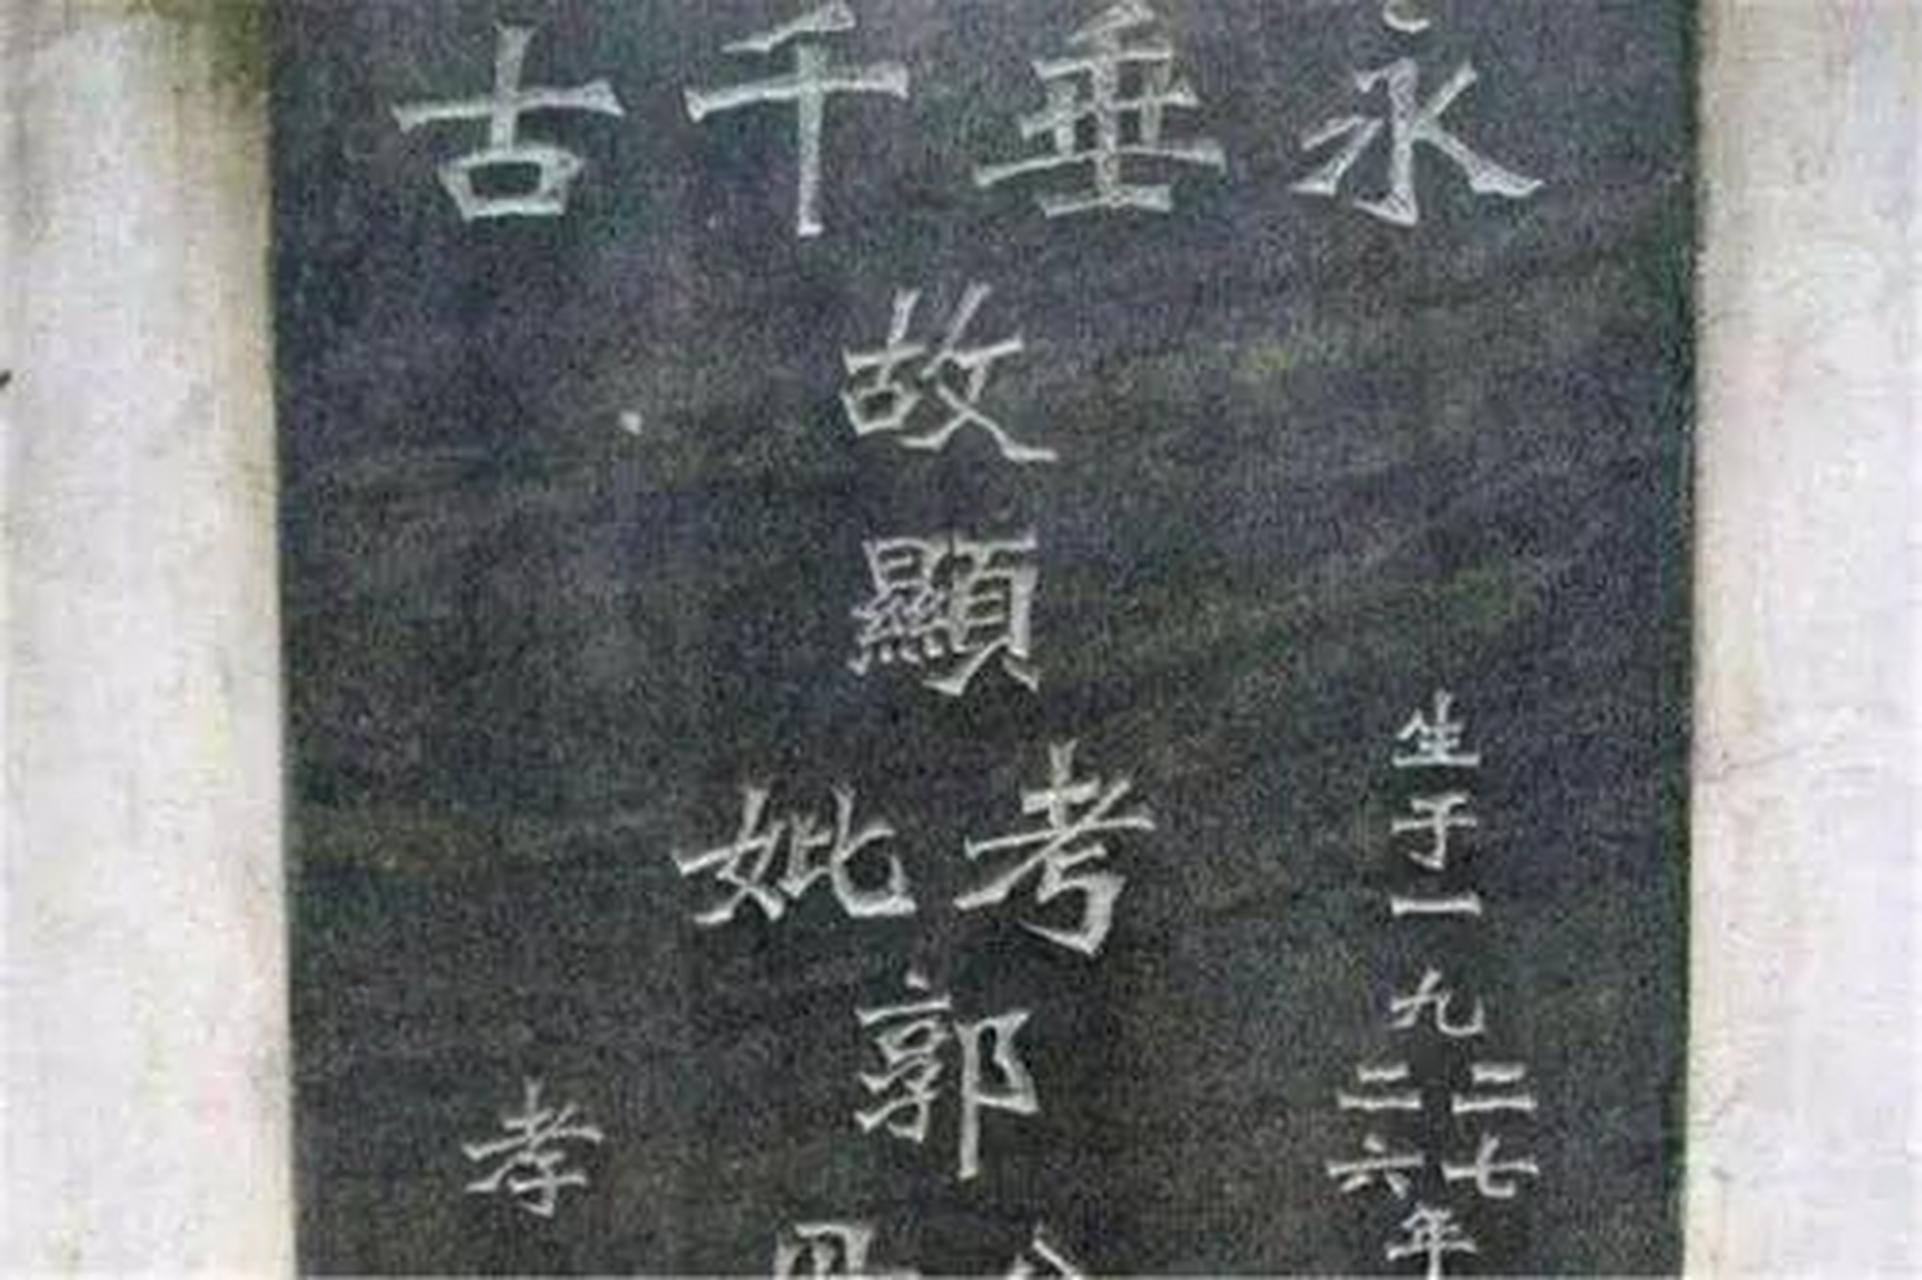 永垂千古
生于一九
二七
二六
年
故顯
考妣
郭
孝